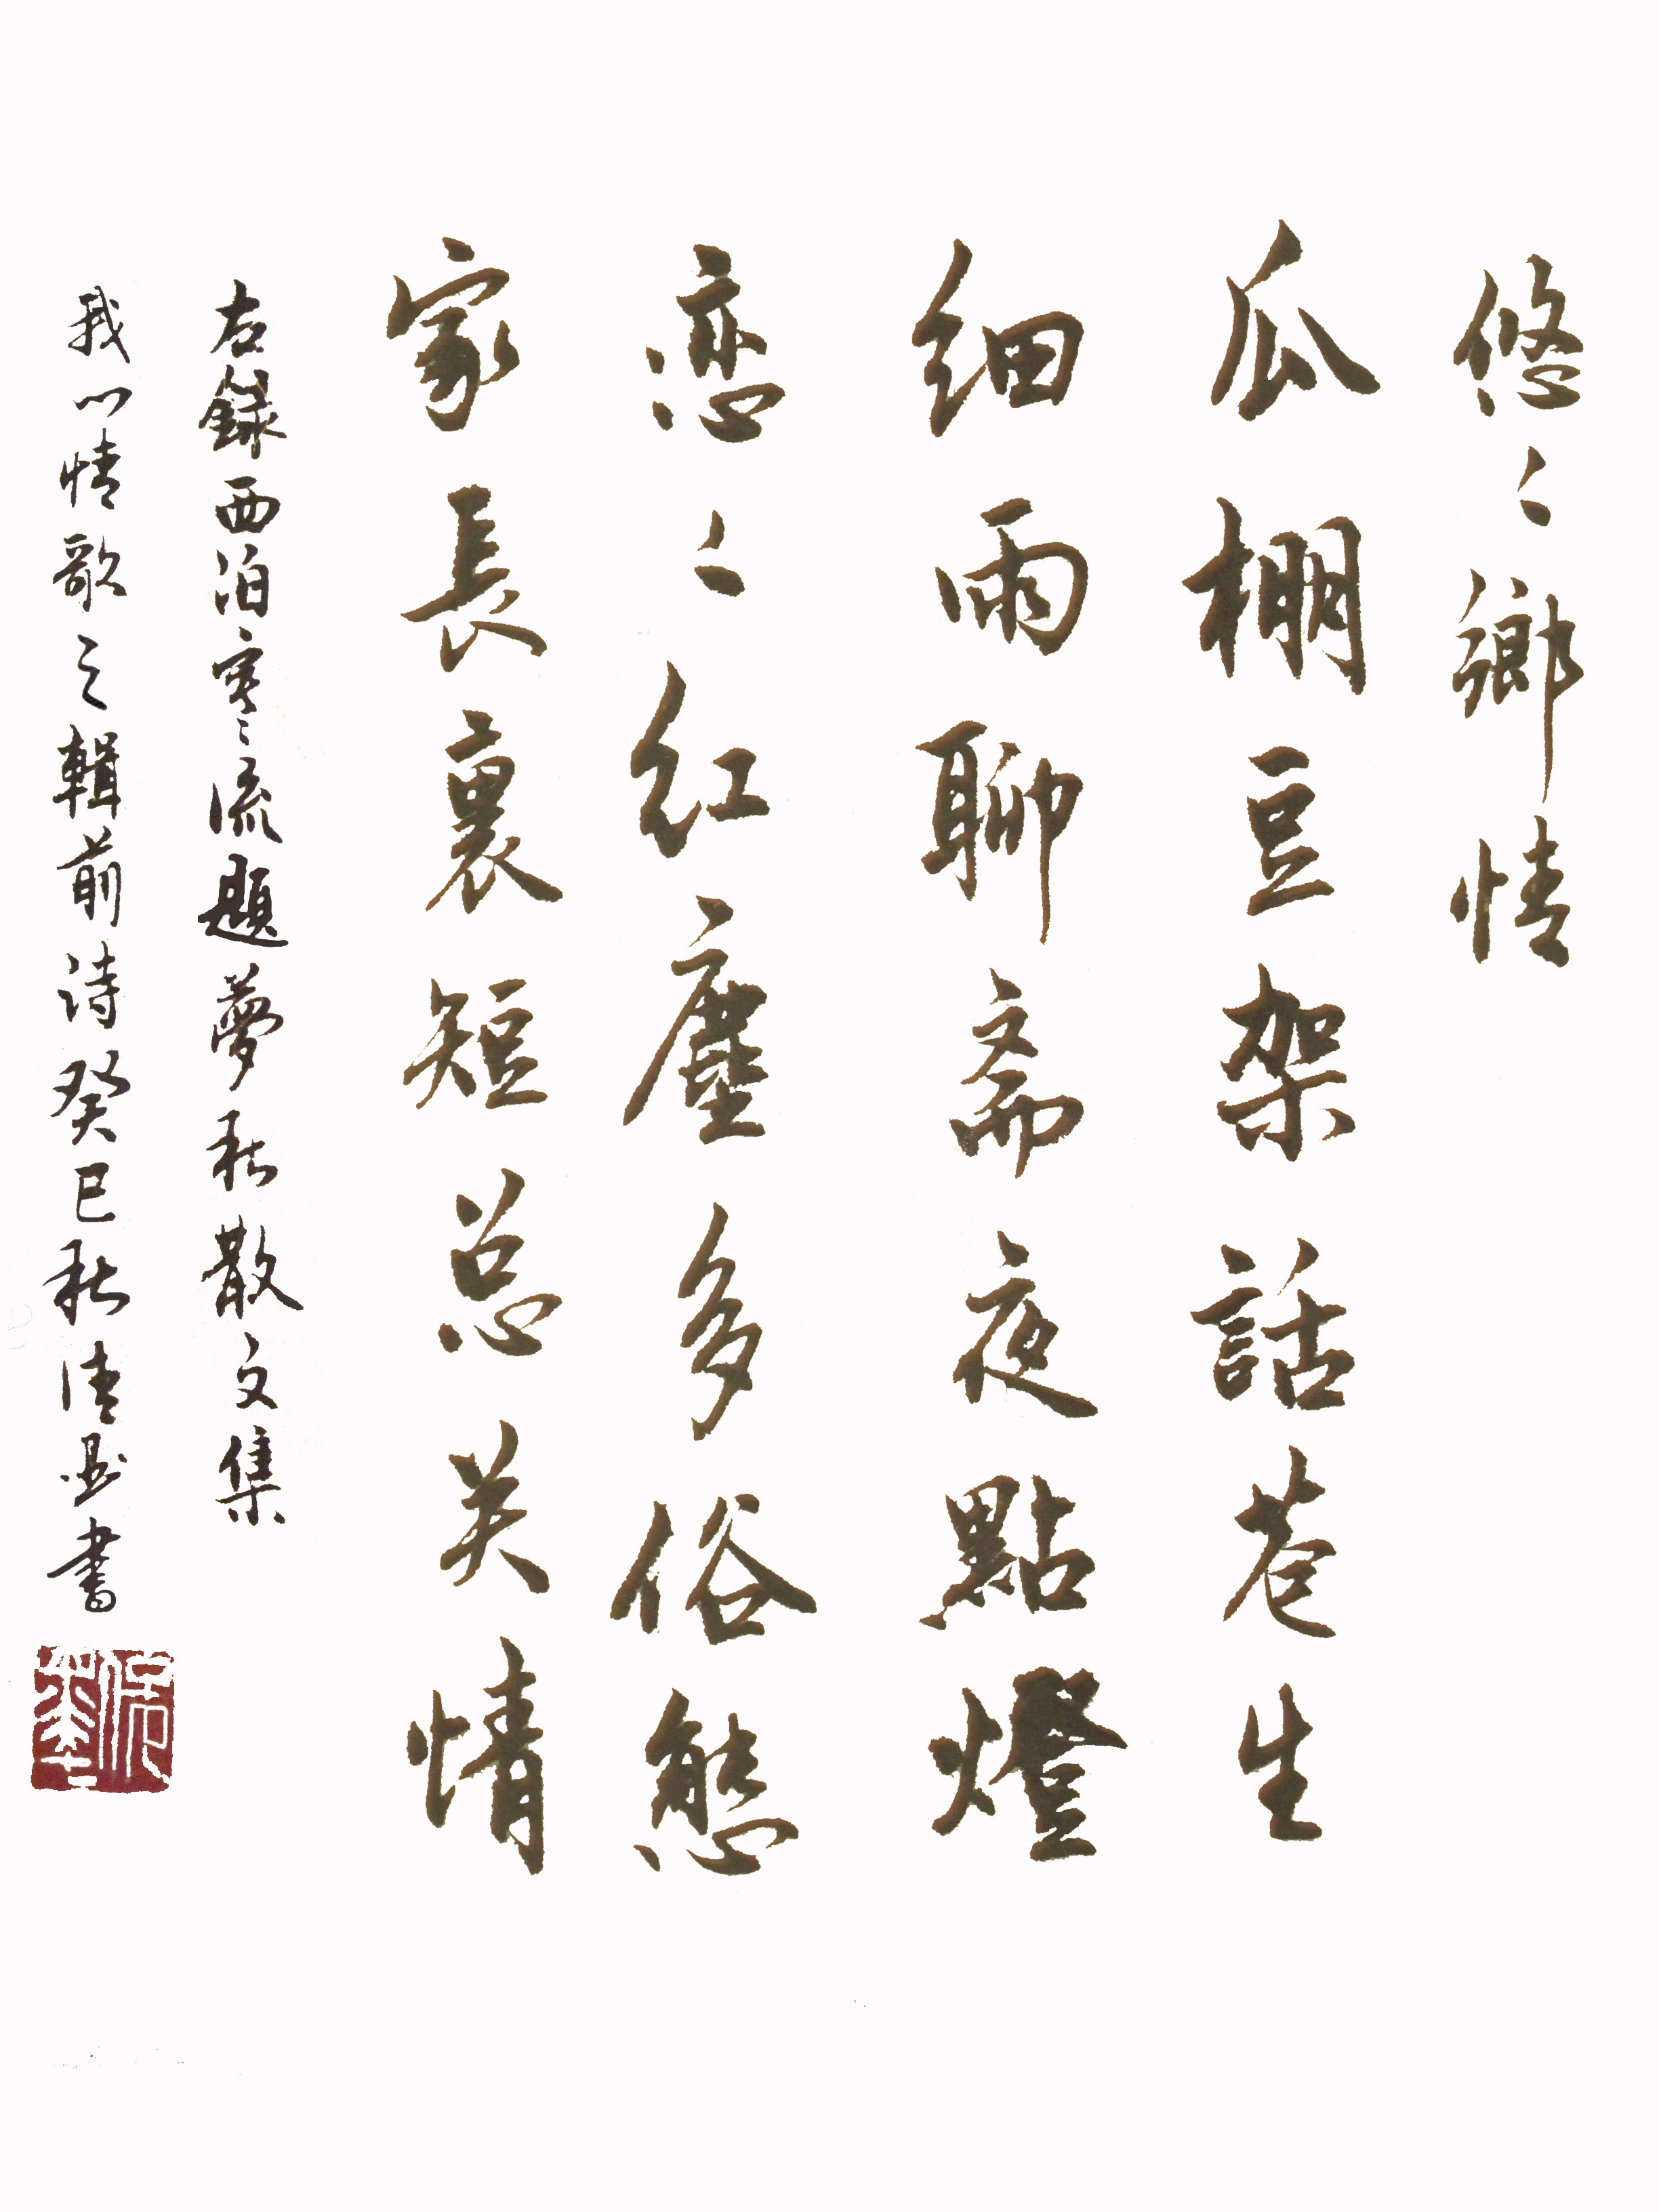 悠々鄉情
瓜棚豆架話巷生
细雨聊斋夜點燈
恋々红塵多俗態
家長裏短总关情
左錄西泊寒流題夢秋散文集
我心情歌之輯前詩癸巳秋清書